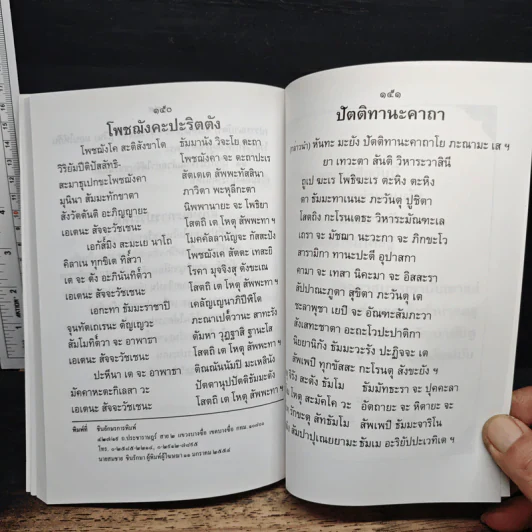 ๑๕๐
โพชฌังคะปะริตตัง
โพชฌังโค สะติสังขาโต ธัมมานัง วิจะโย ตะถา
วิริยัมปีติปัสสัทธิ- โพชฌังคา จะ ตะถาปะเร
สะมาธุเปกขะโพชฌังคา สัตเตเต สัพพะทัสสินา
มุนินา สัมมะทักขาตา ภาวิตา พะหุลีกะตา
สังวัตตันติ อะภิญญายะ นิพพานายะ จะ โพธิยา
เอเตนะ สัจจะวัชเชนะ โสตถิ เต โหตุ สัพพะทา ฯ
เอกัส๎มิง สะมะเย นาโถ โมคคัลลานัญจะ กัสสะปัง
คิลาเน ทุกขิเต ทิส๎วา โพชฌังเค สัตตะ เทสะยิ
เต จะ ตัง อะภินันทิต๎วา โรคา มุจจิงสุ ตังขะเณ
เอเตนะ สัจจะวัชเชนะ โสตถิ เต โหตุ สัพพะทา ฯ
เอกะทา ธัมมะราชาปิ เคลัญเญนาภิปีฬิโต
จุนทัตเถเรนะ ตัญเญวะ ภะณาเปต๎วานะ สาทะรัง
สัมโมทิต๎วา จะ อาพาธา ตัมหา วุฏฐาสิ ฐานะโส
เอเตนะ สัจจะวัชเชนะ โสตถิ เต โหตุ สัพพะทา ฯ
ปะหีนา เต จะ อาพาธา ติณณันนัมปิ มะเหสินัง
มัคคาหะตะกิเลสา วะ ปัตตานุปปัตติธัมมะตัง
เอเตนะ สัจจะวัชเชนะ โสตถิ เต โหตุ สัพพะทา ฯ
พิมพ์ที่
๑๕๑
ปัตติทานะคาถา
หันทะ มะยัง ปัตติทานะคาถาโย ภะณามะ เส ฯ
ยา เทวะตา สันติ วิหาระวาสินี
ถูเป ฆะเร โพธิฆะเร ตะหิง ตะหิง
ตา ธัมมะทาเนนะ ภะวันตุ ปูชิตา
โสตถิง กะโรนเตธะ วิหาระมัณฑะเล
เถรา จะ มัชฌา นะวะกา จะ ภิกขะโว
สารามิกา ทานะปะตี อุปาสกา
คามา จะ เทสา นิคะมา จะ อิสสะรา
สัปปาณะภูตา สุขิตา ภะวันตุ เต
ชะลาพุชา เยปิ จะ อัณฑะสัมภะวา
สังเสทะชาตา อะถะโวปะปาติกา
นิยยานิกัง ธัมมะวะรัง ปะฏิจจะ เต
สัพเพปิ ทุกขัสสะ กะโรนตุ สังขะยัง ฯ
จิรัง สะตัง ธัมโม ธัมมัทธะรา จะ ปุคคะลา
โหตุ สะมัคโค วะ อัตถายะ จะ หิตายะ จะ
รักขะตุ สัทธัมโม สัพเพปิ ธัมมะจาริโน
สัมปาปุเณยยามะ ธัมเม อะริยัปปะเวทิเต ฯ